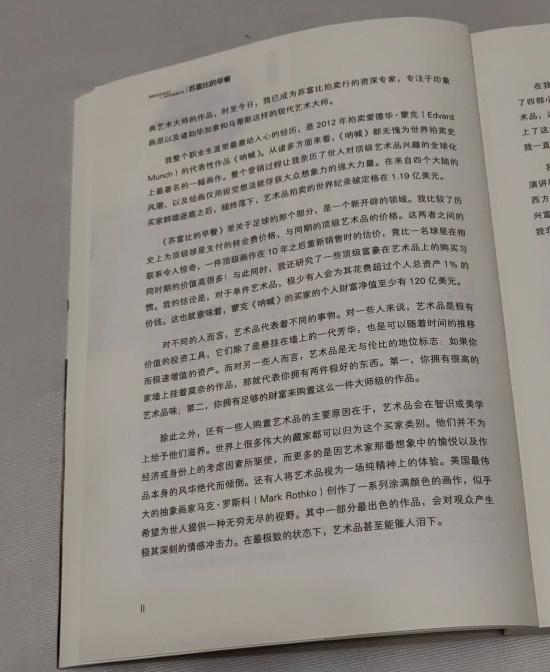 BREAKFAST AT SOTHEBY'S | 苏富比的早餐
典艺术大师的作品，时至今日，我已成为苏富比拍卖行的资深专家，专注于印象
画派以及诸如毕加索和马蒂斯这样的现代艺术大师。
我整个职业生涯里最激动人心的经历，是 2012 年拍卖爱德华·蒙克（Edvard
Munch）的代表性作品《呐喊》。从诸多方面来看，《呐喊》都无愧为世界拍卖史
上最著名的一幅画作。整个营销过程让我亲历了世人对顶级艺术品兴趣的全球化
风潮，以及绘画仅用视觉想法就俘获大众想象力的强大力量。在来自四个大陆的
买家群雄逐鹿之后，槌终落下，艺术品拍卖的世界纪录被定格在 1.19 亿美元。
《苏富比的早餐》里关于足球的那个部分，是一个新开辟的领域。我比较了历
史上为顶级球星支付的转会费价格，与同期的顶级艺术品的价格。这两者之间的
联系令人惊奇，一件顶级画作在 10 年之后重新销售时的估价，竟比一名球星在相
同时期的价值高很多！与此同时，我还研究了一些顶级富豪在艺术品上的购买习
惯。我的结论是，对于单件艺术品，极少有人会为其花费超过个人总资产 1% 的
价钱。这也就意味着，蒙克《呐喊》的买家的个人财富净值至少有 120 亿美元。
对不同的人而言，艺术品代表着不同的事物。对一些人来说，艺术品是极有
价值的投资工具，它们除了是悬挂在墙上的一代芳华，也是可以随着时间的推移
而极速增值的资产。而对另一些人而言，艺术品是无与伦比的地位标志：如果你
家墙上挂着莫奈的作品，那就代表你拥有两件极好的东西。第一，你拥有很高的
艺术品味；第二，你拥有足够的财富来购置这么一件大师级的作品。
除此之外，还有一些人购置艺术品的主要原因在于，艺术品会在智识或美学
上给予他们滋养。世界上很多伟大的藏家都可以归为这个买家类别。他们并不为
经济或身份上的考虑因素所驱使，而更多的是因艺术家那番想象中的愉悦以及作
品本身的风华绝代而倾倒。还有人将艺术品视为一场纯精神上的体验。美国最伟
大的抽象画家马克·罗斯科（Mark Rothko）创作了一系列涂满颜色的画作，似乎
希望为世人提供一种无穷无尽的视野。其中一部分最出色的作品，会对观众产生
极其深刻的情感冲击力。在最极致的状态下，艺术品甚至能催人泪下。
II
在我
了四部小
术品，
上了这
我一直
演讲
西方
兴富
我非